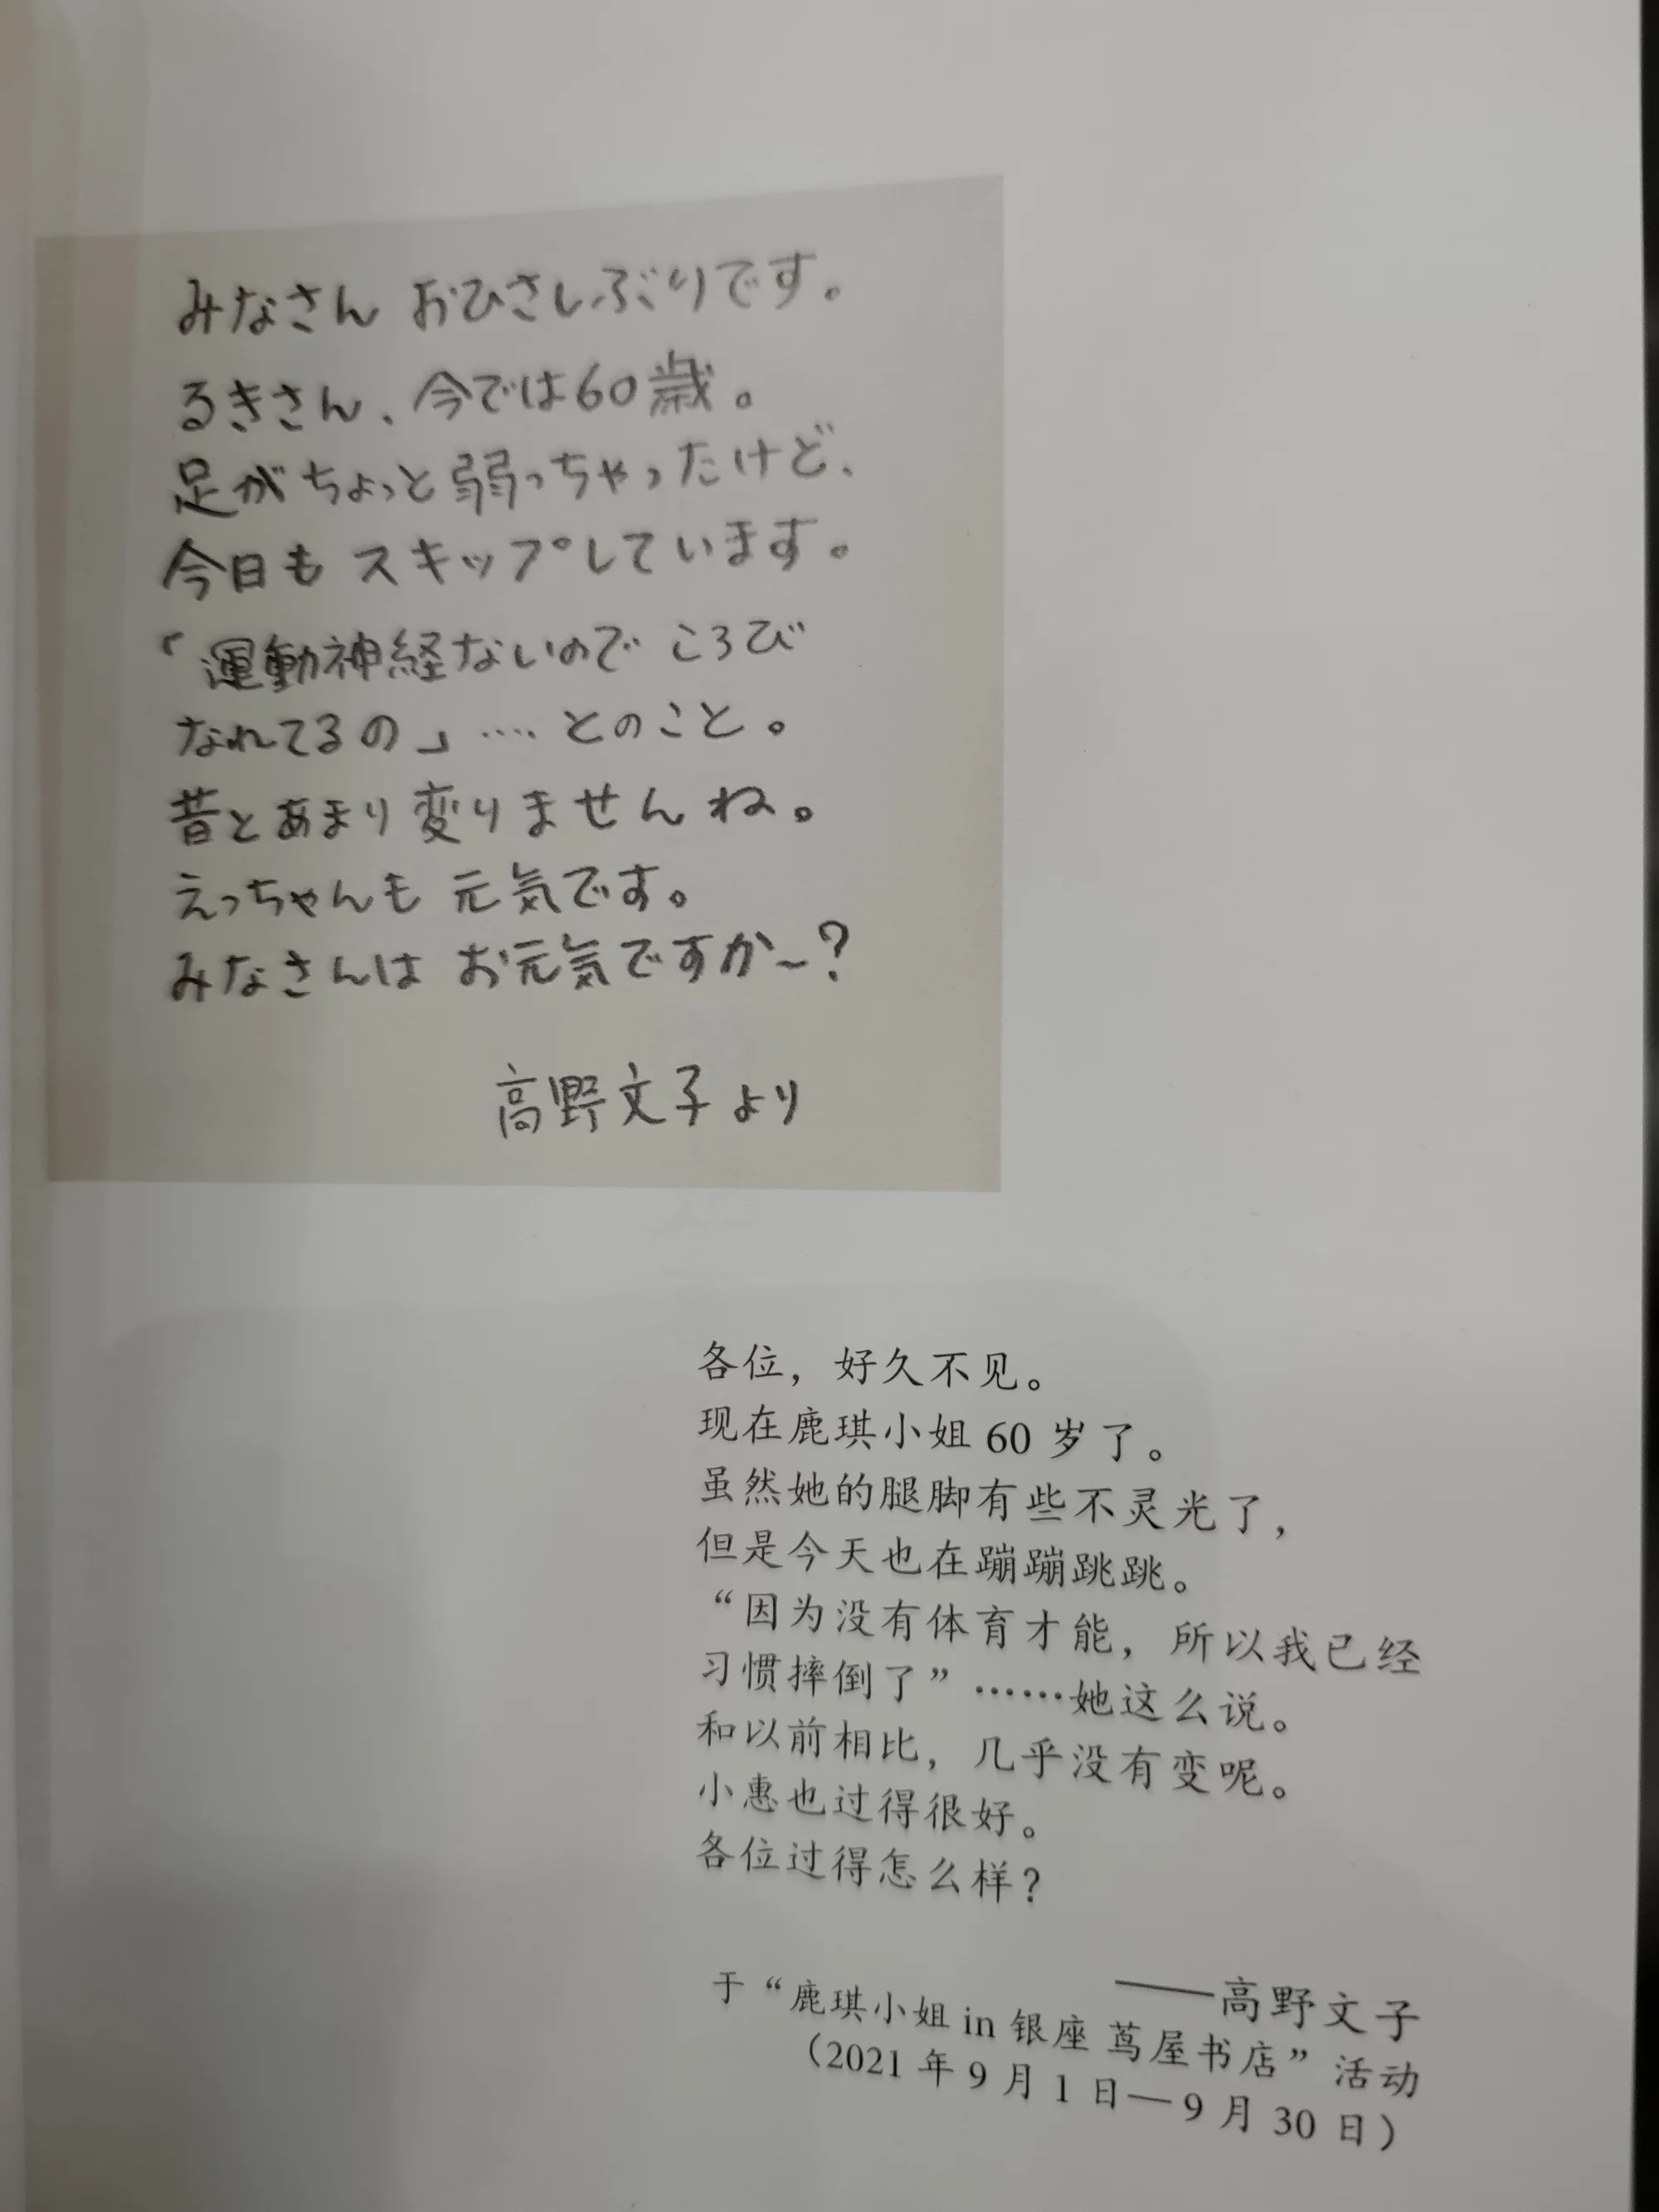 みなさん おひさしぶりです。
るきさん、今では60歳。
足がちょっと弱っちゃったけど、
今日も スキップしています。
「運動神経ないので ころび
なれてるの」‥‥とのこと。
昔とあまり変りませんね。
えっちゃんも 元気です。
みなさんは お元気ですか〜?
高野文子より
各位，好久不见。
现在鹿琪小姐 60 岁了。
虽然她的腿脚有些不灵光了，
但是今天也在蹦蹦跳跳。
“因为没有体育才能，所以我已经
习惯摔倒了”……她这么说。
和以前相比，几乎没有变呢。
小惠也过得很好。
各位过得怎么样？
——高野文子
于“鹿琪小姐 in 银座 茑屋书店”活动
（2021 年 9 月 1 日—9 月 30 日）